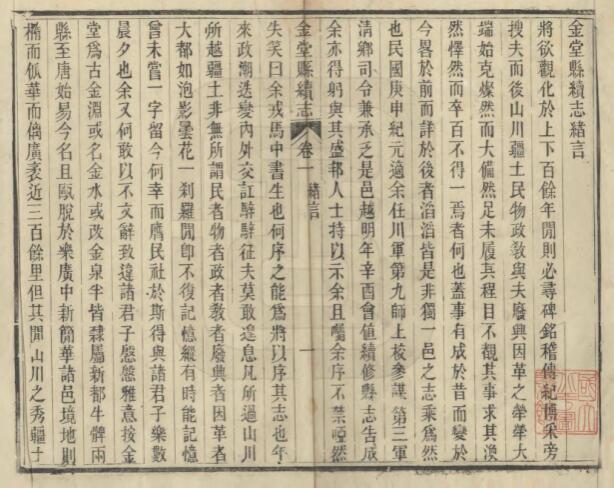 金堂縣續志緒言
將欲觀化於上下百餘年間則必尋碑銘稽傳紀博采旁
搜夫而後山川疆土民物政敎與夫廢興因革之犖犖大
端始克燦然而大備然足未履其程目不覩其事求其渙
然懌然而卒百不得一焉者何也蓋事有成於昔而變於
今畧於前而詳於後者滔滔皆是非獨一邑之志乘爲然
也民國庚申紀元適余任川軍第九師上校參謀第三軍
淸鄉司令兼承乏是邑越明年辛酉會値續修縣志告成
余亦得躬與其盛邦人士持以示余且囑余序不禁啞然
金堂縣續志 卷一 緒言 一
失笑曰余戎馬中書生也何序之能爲將以序其志也年
來政潮迭變內外交訌騂騂征夫莫敢遑息凡所過山川
所越疆土非無所謂民者物者政者敎者廢興者因革者
大都如泡影曇花一刹羅閒卽不復記憶縱有時能記憶
曾未嘗一字留今何幸而膺民社於斯得與諸君子樂數
晨夕也余又何敢以不文辭致違諸君子慇慇雅意按金
堂爲古金淵或名金水或改金泉半皆隸屬新都牛鞞兩
縣至唐始易今名且甌脫於樂廣中新簡華諸邑境地則
橢而狐華而僪廣袤近三百餘里但其閒山川之秀疆土